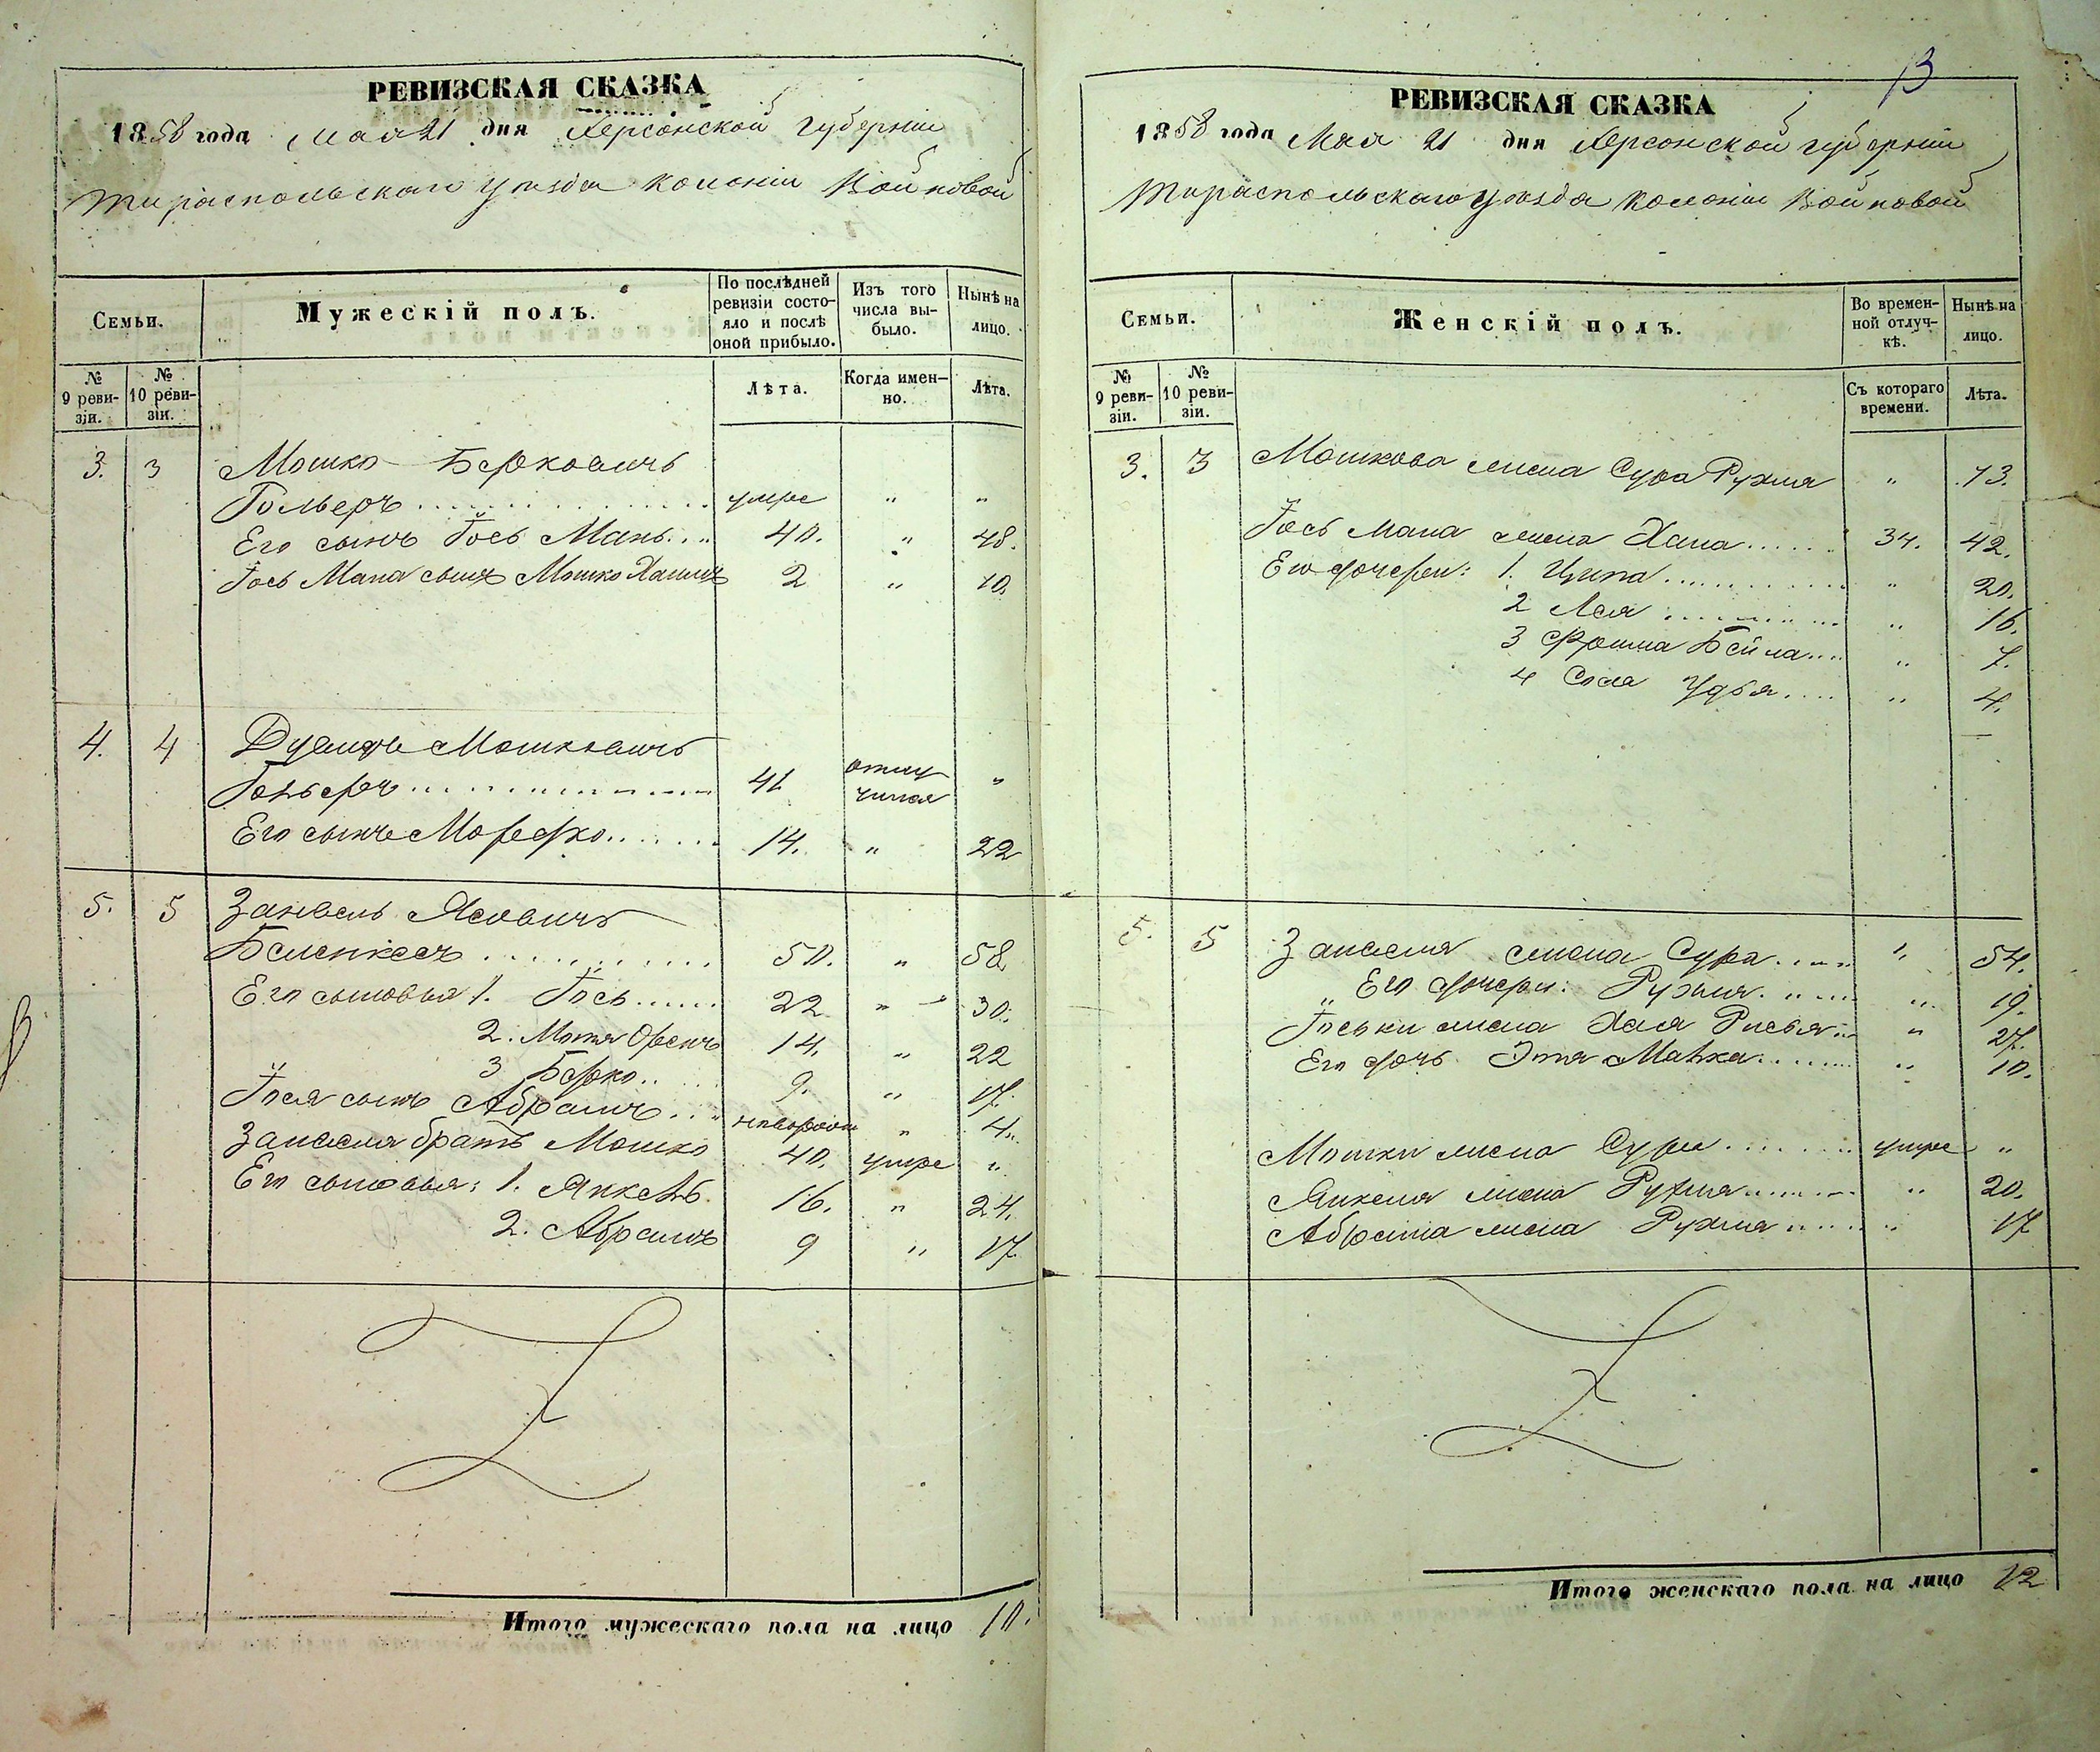 РЕВИЗСКАЯ СКАЗКА
1858 года Мая 21 дня Херсонской губернии
Тираспольскаго уѣзда колоніи Войновой
Семьи.
Мужескій полъ.
По послѣдней ревизіи состояло и послѣ оной прибыло.
Изъ того числа выбыло.
Нынѣ на лицо.
№ 9 ревизіи.
№ 10 ревизіи.
Лѣта.
Когда именно.
Лѣта.
3. 3 Мошко Берковичъ
Гольеръ умре " "
Его сынъ Іось Мань 40. " 48.
Іось Мана сынъ Мошко Хаимъ 2 " 10.
4. 4 Мошковичъ
41 отлу "
чился
Его сынъ 14. " 22
5. 5 Занвель
50. " 58
Его сыновья 1. Іось 22 " 30.
2. Мотя 14. " 22
3 Берко 9. " 17.
Іося сынъ Абрамъ новорож " 4.
Занвеля братъ Мошко 40. умре "
Его сыновья: 1. Янкель 16. " 24.
2. Абрамъ 9 " 17.
Итого мужескаго пола на лицо 10.
13
РЕВИЗСКАЯ СКАЗКА
1858 года Мая 21 дня Херсонской губерніи
Тираспольскаго уѣзда колоніи Войновой
Семьи.
Женскій полъ.
Во временной отлучкѣ.
Нынѣ на лицо.
№ 9 ревизіи.
№ 10 ревизіи.
Съ котораго времени.
Лѣта.
3. 3 Мошкова жена Сура Рухля " 73.
Іось Мана жена Хана 34. 42.
Его дочери: 1. Ципа " 20.
2 Лея " 16.
3 Фрима Бейла " 7.
4 Удья " 4.
5. 5 Занвеля жена Сура " 54.
" Его дочери: Рухля " 19.
Іоськи жена Хая " 27.
Его дочь Этя Малка " 10.
Мошки жена Сура умре "
Янкеля жена Рухля " 20.
Абрама жена Рухля " 17
Итого женскаго пола на лицо 12